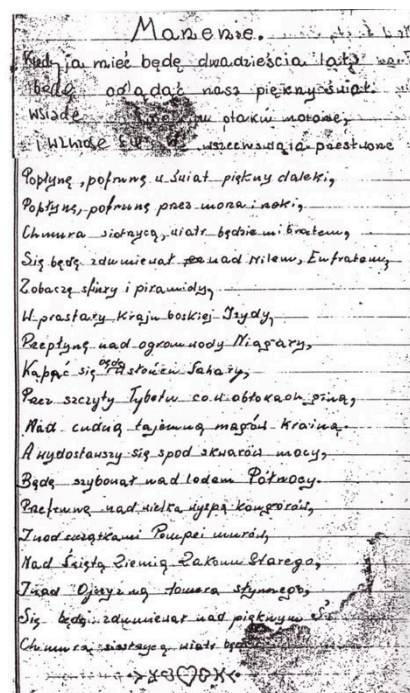 Marzenie.
Kiedy ja mieć będę dwadzieścia lat,
będę oglądać nasz piękny świat.
Wsiądę ptaków
i wzwiozę się wszechświata
Popłynę, pofrunę w świat piękny daleki,
Popłynę, pofrunę przez morza i rzeki,
Chmura siostrzycą, wiatr będzie mi bratem,
Się będę zdumiewał nad Nilem, Eufratem,
Zobaczę sfinxy i piramidy,
W prastary kraju boskiej Izydy,
Przepłynę nad ogrom wody Niagary,
Kąpać się będę słońcu Sahary,
Przez szczyty Tybetu co w obłokach giną,
Nad cudną tajemną magów krainą.
A wydostawszy się spod skwarów mocy,
Będę szybował nad lodem Północy.
Przefrunę nad wielką wyspą kangurów,
I nad szczątkami Pompei murów,
Nad Świętą Ziemią Zakonu Starego,
I nad Ojczyzną Homera słynnego,
Się będę zdumiewał nad pięknym
Chmura siostrzycą wiatr będzie